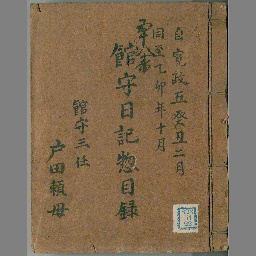 自寛政五癸丑二月
同至乙卯年十月
館守日記惣目録
館守三任
戸田頼母